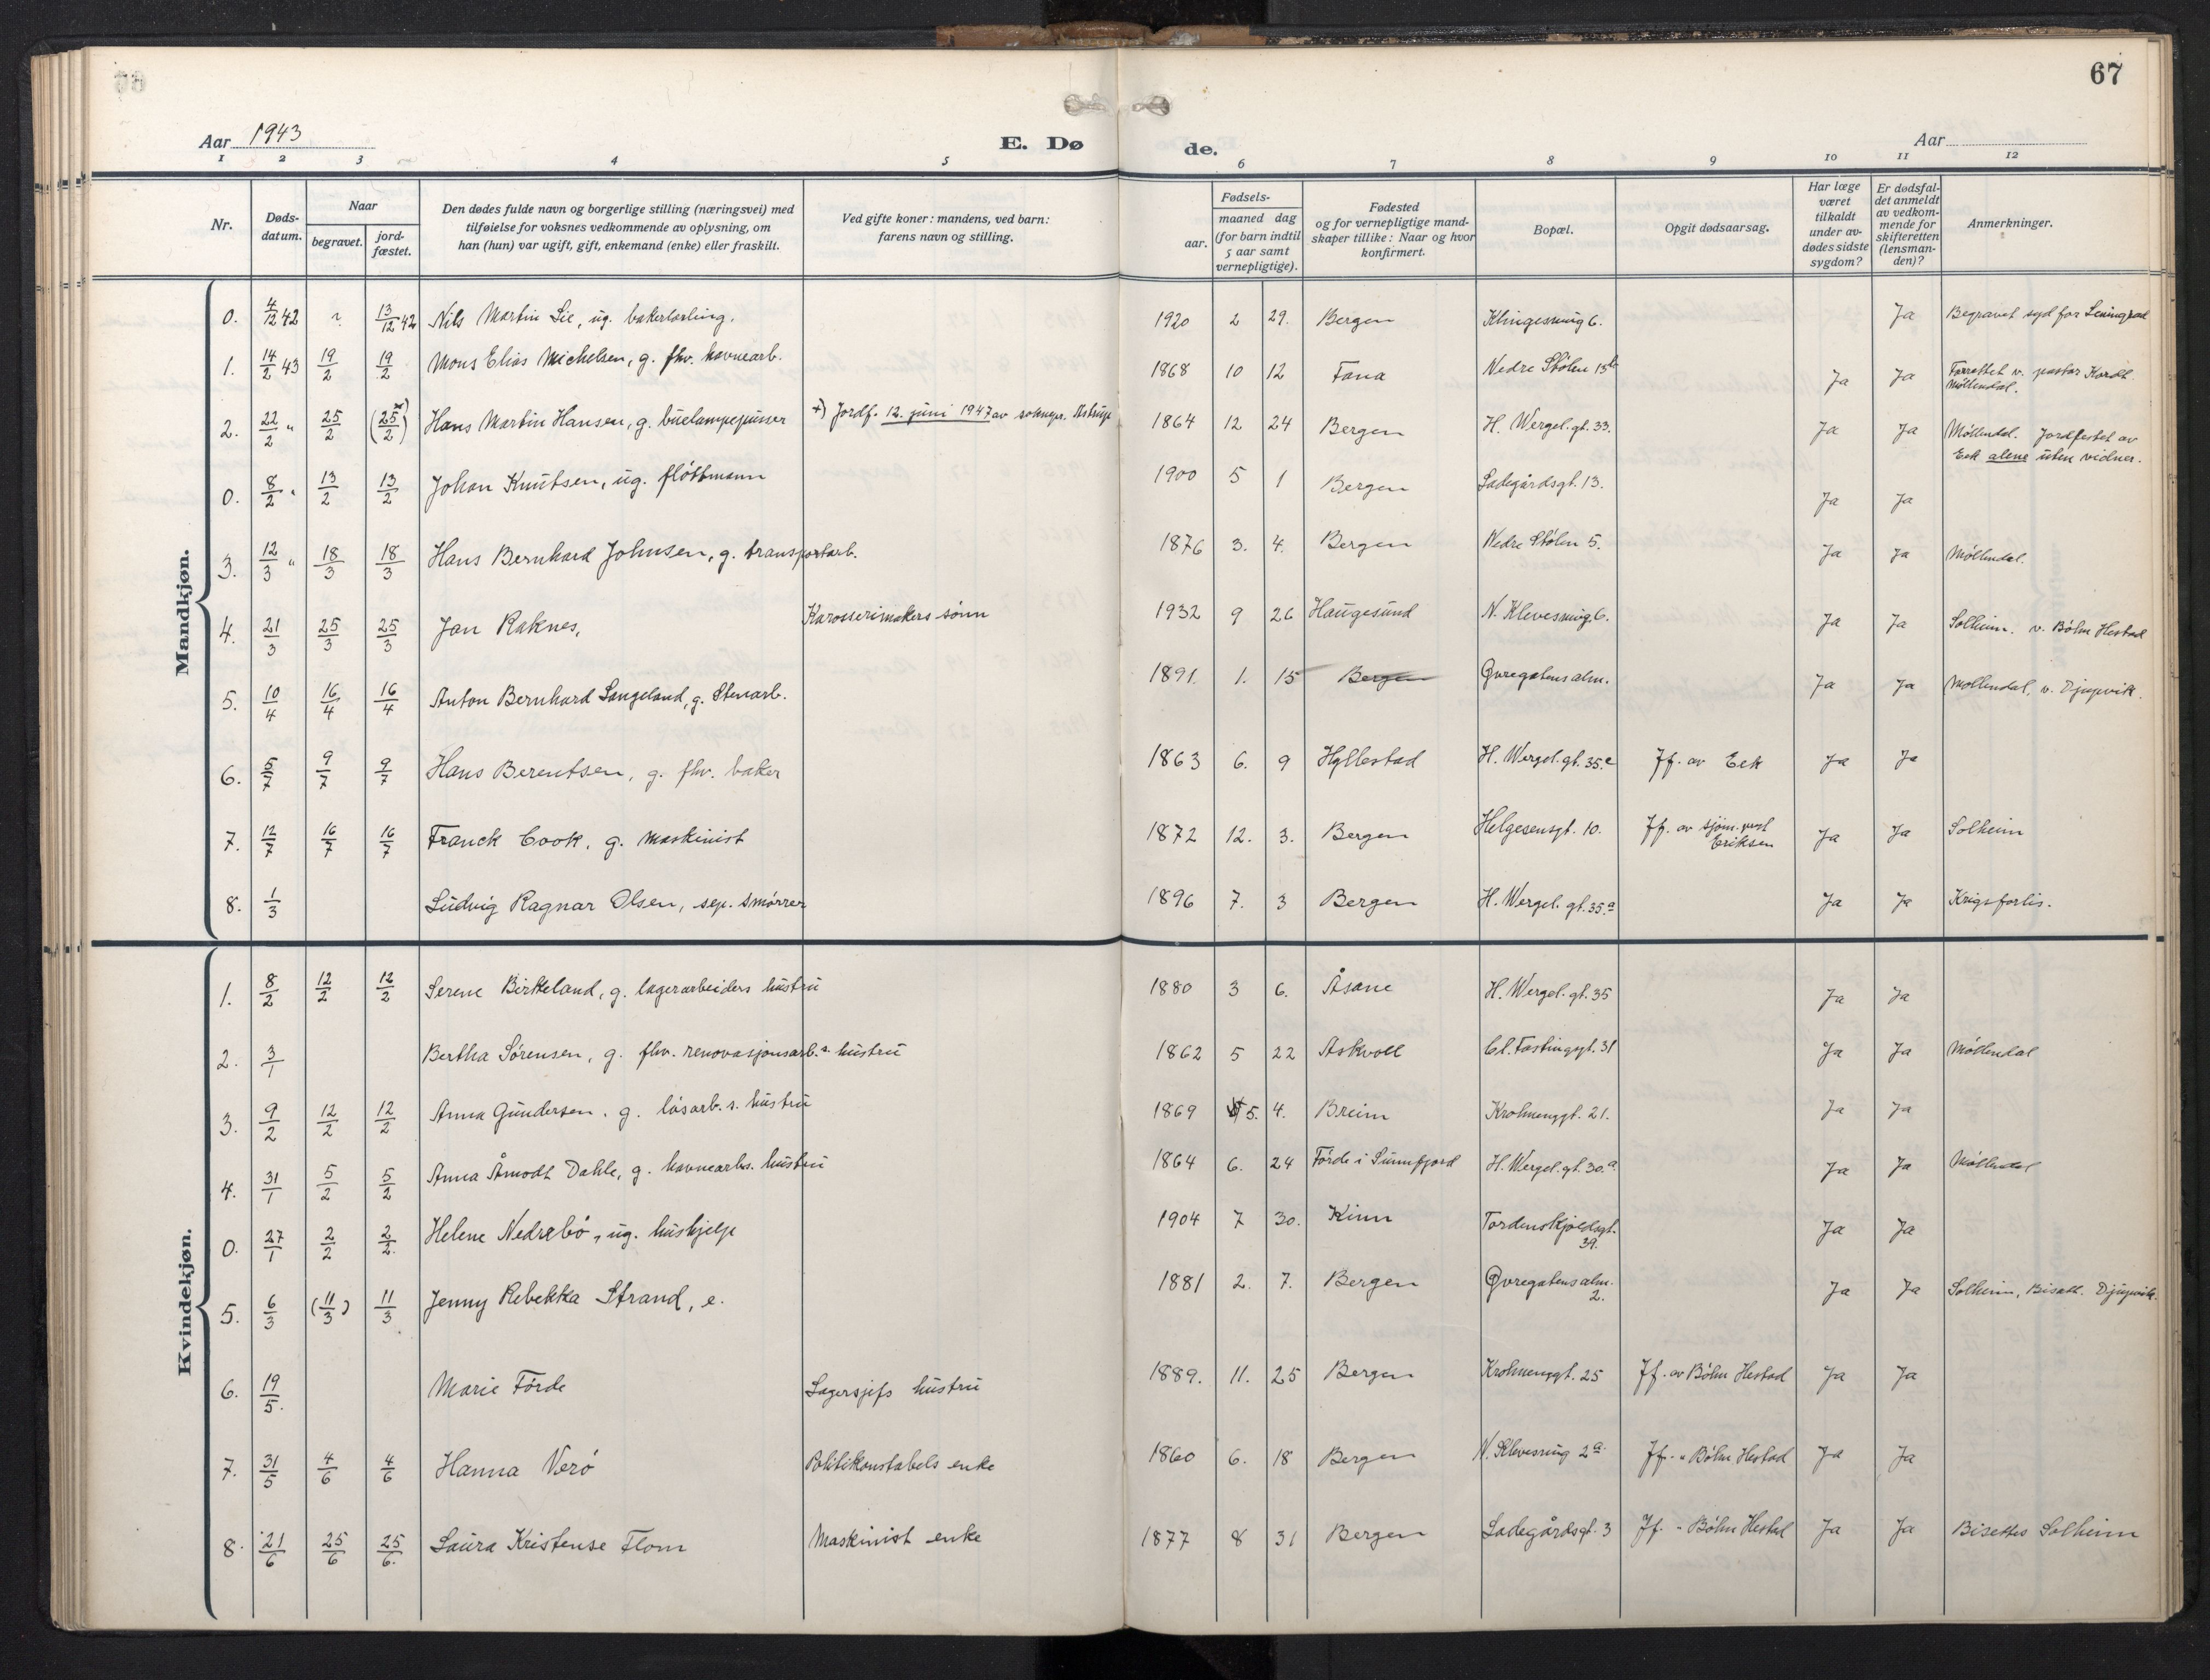 67
Aar 1943
E. Dø
de.
Aar
1 2 3 4 5 6 7 8 9 10 11 12
Nr.
Døds-
datum.
Naar
begravet.
jord-
fæstet.
Den dødes fulde navn og borgerlige stilling (næringsvei) med
tilføielse for voksnes vedkommende av oplysning, om
han (hun) var ugift, gift, enkemand (enke) eller fraskilt.
Ved gifte koner: mandens, ved barn:
farens navn og stilling.
Fødsels-
aar.
maaned dag
(for barn indtil
5 aar samt
vernepligtige).
Fødested
og for vernepligtige mand-
skaper tillike: Naar og hvor
konfirmert.
Bopæl.
Opgit dødsaarsag.
Har læge
været
tilkaldt
under av-
dødes sidste
sygdom?
Er dødsfal-
det anmeldt
av vedkom-
mende for
skifteretten
(lensman-
den)?
Anmerkninger.
Mandkjøn.
0. 4/12 42 ? 13/12 42 Nils Martin Lie, ug. bakerlærling. 1920 2 29. Bergen Klingesmug 6. Ja Begravet syd for Leningrad
1. 14/2 43 19/2 19/2 Mons Elias Michelsen, g. fhv. havnearb. 1868 10 12 Fana Nedre Stølen 15b Ja Ja Forrettet v. pastor Kordt.
Møllendal.
2. 22/2 " 25/2 (25/2)x Hans Martin Hansen, g. buelampepusser +) Jordf. 12. juni 1947 av sokneps. Astrup 1864 12 24 Bergen H. Wergel. gt. 33. Ja Ja Møllendal. Jordfestet av
Eek alene uten vidner.
0. 8/2 " 13/2 13/2 Johan Knutsen, ug. fløttmann 1900 5 1 Bergen Ladegårdsgt. 13. Ja Ja
3. 12/3 " 18/3 18/3 Hans Bernhard Johnsen, g. transportarb. 1876 3. 4. Bergen Nedre Stølen 5. Ja Ja Møllendal.
4. 21/3 25/3 25/3 Jan Raknes, Karosserimakers sønn 1932 9 26 Haugesund N. Klevesmug 6. Ja Ja Solheim. v. Bøhn Hestad
5. 10/4 16/4 16/4 Anton Bernhard Langeland, g. Stenarb. 1891. 1. 15 Bergen Øvregatens alm. Ja Ja Møllendal, v. Djupvik.
6. 5/7 9/7 9/7 Hans Berentsen, g. fhv. baker 1863 6. 9 Hyllestad H. Wergel. gt. 35.c Jf. av Eek Ja Ja
7. 12/7 16/7 16/7 Franck Cook, g. maskinist 1872 12. 3. Bergen Helgesensgt. 10. Jf. av sjøm. prest
Eriksen Ja Ja Solheim
8. 1/3 Ludvig Ragnar Olsen, sep. smørrer 1896 7. 3 Bergen H. Wergel. gt. 35.a Ja Ja Krigsforlis.
Kvindekjøn.
1. 8/2 12/2 12/2 Serene Birkeland, g. lagerarbeiders hustru 1880 3 6. Åsane H. Wergel. gt. 35 Ja Ja
2. 3/1 Bertha Sørensen, g. fhv. renovasjonsarb.s hustru 1862 5 22 Askvoll Cl. Fastingsgt. 31 Ja Ja Møllendal
3. 9/2 12/2 12/2 Anna Gundersen, g. løsarb.s. hustru 1869 5. 4. Breim Krohnenggt. 21. Ja Ja
4. 31/1 5/2 5/2 Anna Åmodt Dahle, g. havnearbs. hustru 1864 6. 24 Førde i Sunnfjord H. Wergel. gt. 30.a Ja Ja Møllendal
0. 27/1 2/2 2/2. Helene Nedrebø, ug. hushjelp 1904 7 30. Kinn Tordenskjoldsgt.
39. Ja Ja
5. 6/3 (11/3) 11/3 Jenny Rebekka Strand, e. 1881 2. 7. Bergen Øvregatens alm.
2. Ja Ja Solheim, Bisatt. Djupvik.
6. 19/5. Marie Førde Lagersjefs hustru 1889. 11. 25 Bergen Krohnenggt. 25 Jf. av Bøhn Hestad Ja Ja
7. 31/5 4/6 4/6 Hanna Verø Politikonstabels enke 1860 6. 18 Bergen N. Klevesmug 2a. Jf. " Bøhn Hestad Ja Ja
8. 21/6 25/6 25/6. Laura Kristense Flom Maskinist enke 1877 8 31 Bergen Ladegårdsgt. 3 Jf. " Bøhn Hestad Ja Ja Bisettes Solheim